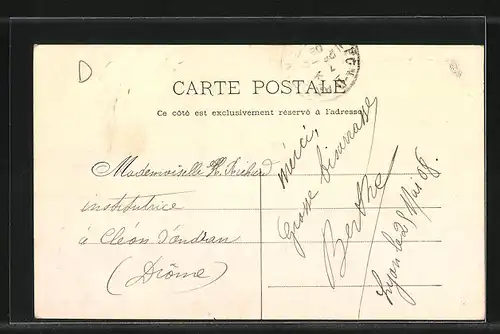 D
CARTE POSTALE
Ce côté est exclusivement réservé à l'adresse
Mademoiselle H. Richard
institutrice
à Cléon d'andran
(Drôme)
merci,
Grosse
Berthe
Lyon le 25 Mai 08.